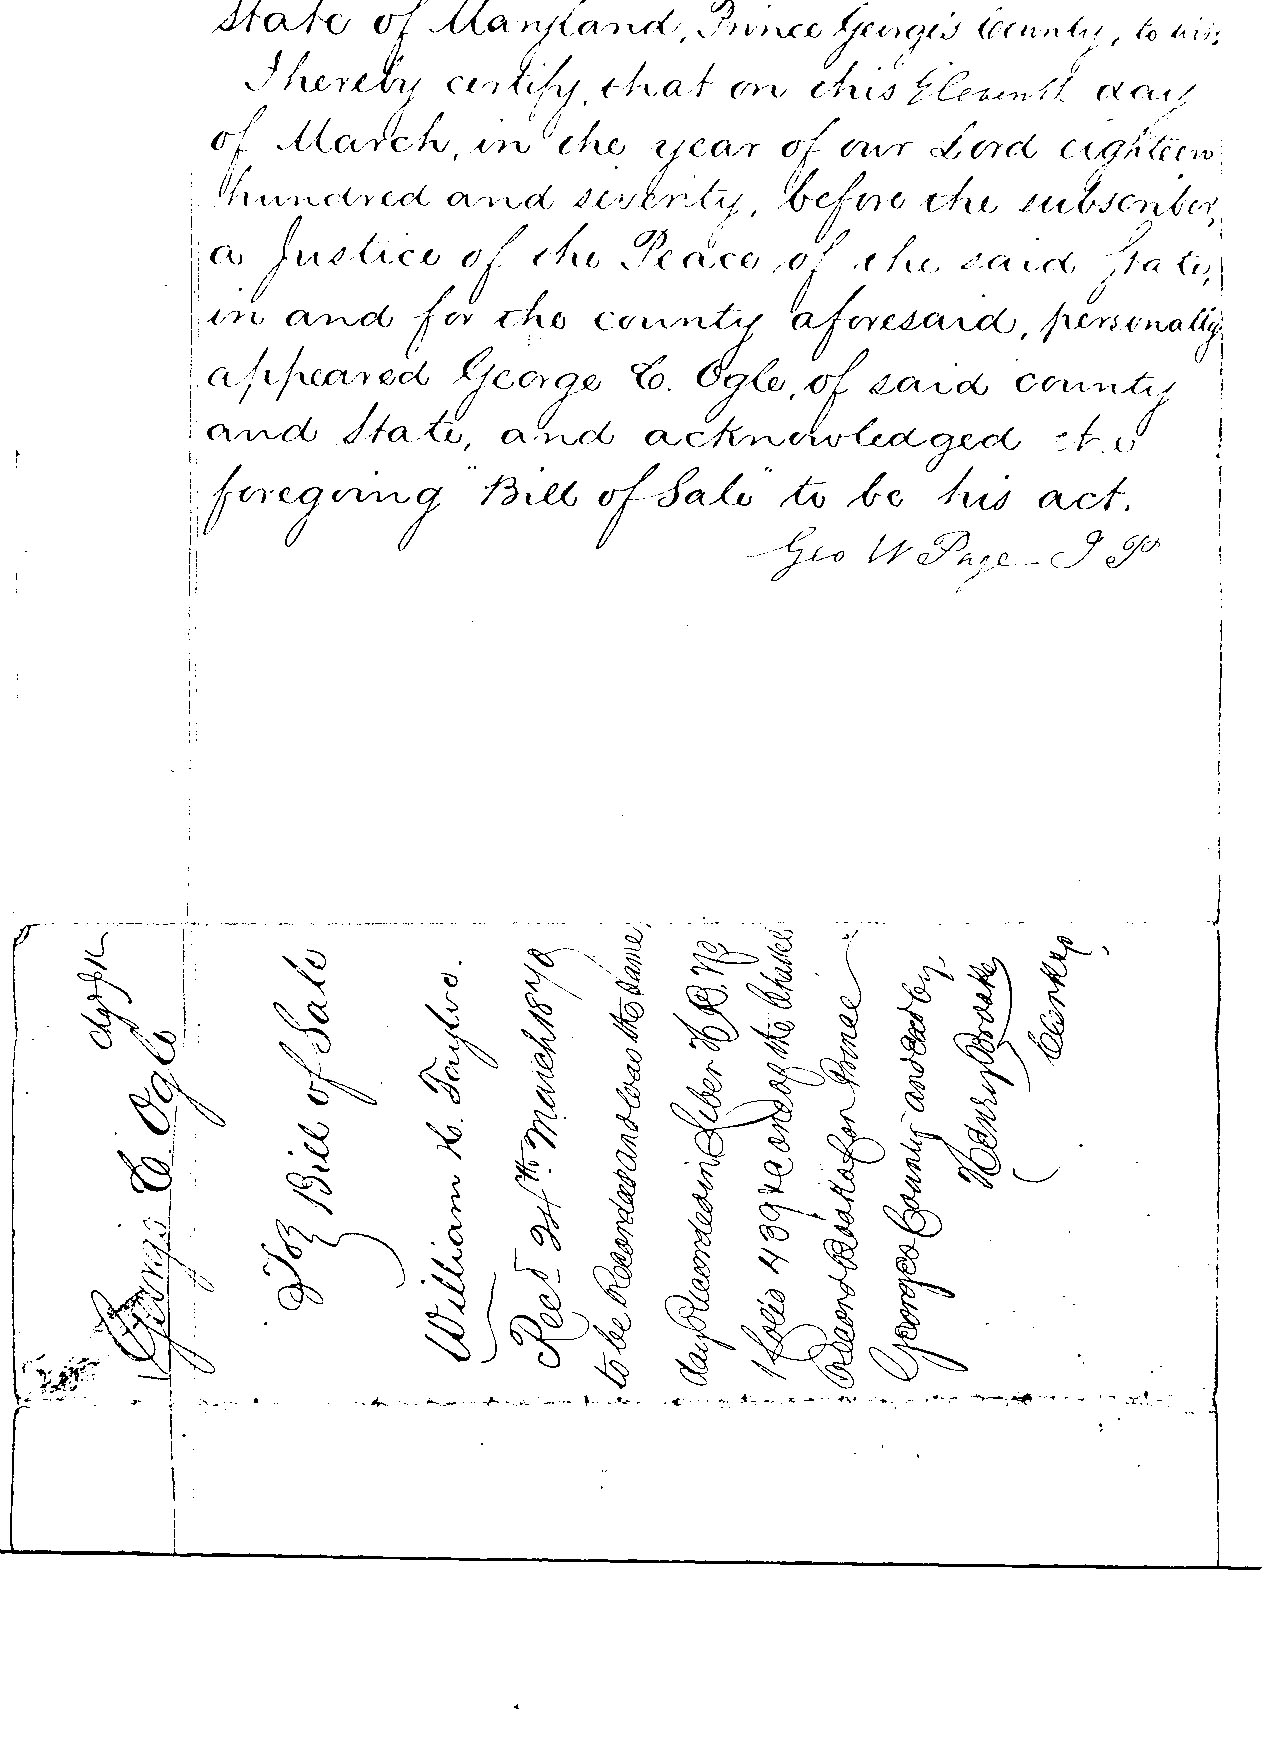 State of Maryland, Prince George's County, to wit;
I hereby certify, that on this Eleventh day
of March, in the year of our Lord eighteen
hundred and seventy, before the subscriber,
a Justice of the Peace of the said State,
in and for the county aforesaid, personally
appeared George C. Ogle, of said county
and State, and acknowledged the
foregoing "Bill of Sale" to be his act.
Geo W Page - J P
George C Ogle
To Bill of Sale
William H. Tayloe.
Recd 24th March 1870
to be Recorded and was the same
day Recorded in Liber H.B. No
1 folio 439 &c one of the Chattel
Record Books for Prince
Georges County and Ex by
Henry Brooke
Clerk